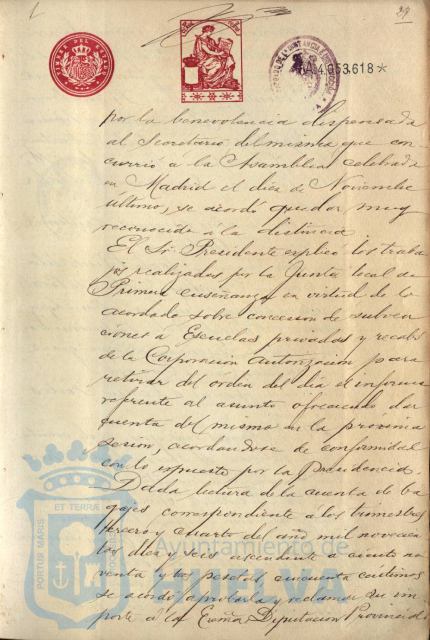 29
A.4.053.618*
TIMBRE DEL ESTADO
por la benevolencia dispensada
al Secretario del misma que con
currió á la Asamblea celebrada
en Madrid el diez de Noviembre
último, se acordó quedar muy
reconocida á la distinción
El Sr. Presidente explicó los traba
jos realizados por la Junta local de
Primera enseñanza en virtud de lo
acordado sobre concesión de subven
ciones á Escuelas privadas y recabó
de la Corporación autorización para
retirar del orden del dia el informe
referente al asunto ofreciendo dar
cuenta del mismo en la próxima
sesion, acordandose de conformidad
con lo expuesto por la Presidencia.
Dada lectura de la cuenta de ba
gajes correspondiente á los trimestres
tercero y cuarto del año mil novecien
tos diez y seis ascendente a ciento no
venta y tres pesetas, cincuenta céntimos
se acordó aprobarla y reclamar su im
porte á la Excma Diputacion Provincial
PORTUS MARIS ET TERRAE
Ayuntamiento de
HUELVA